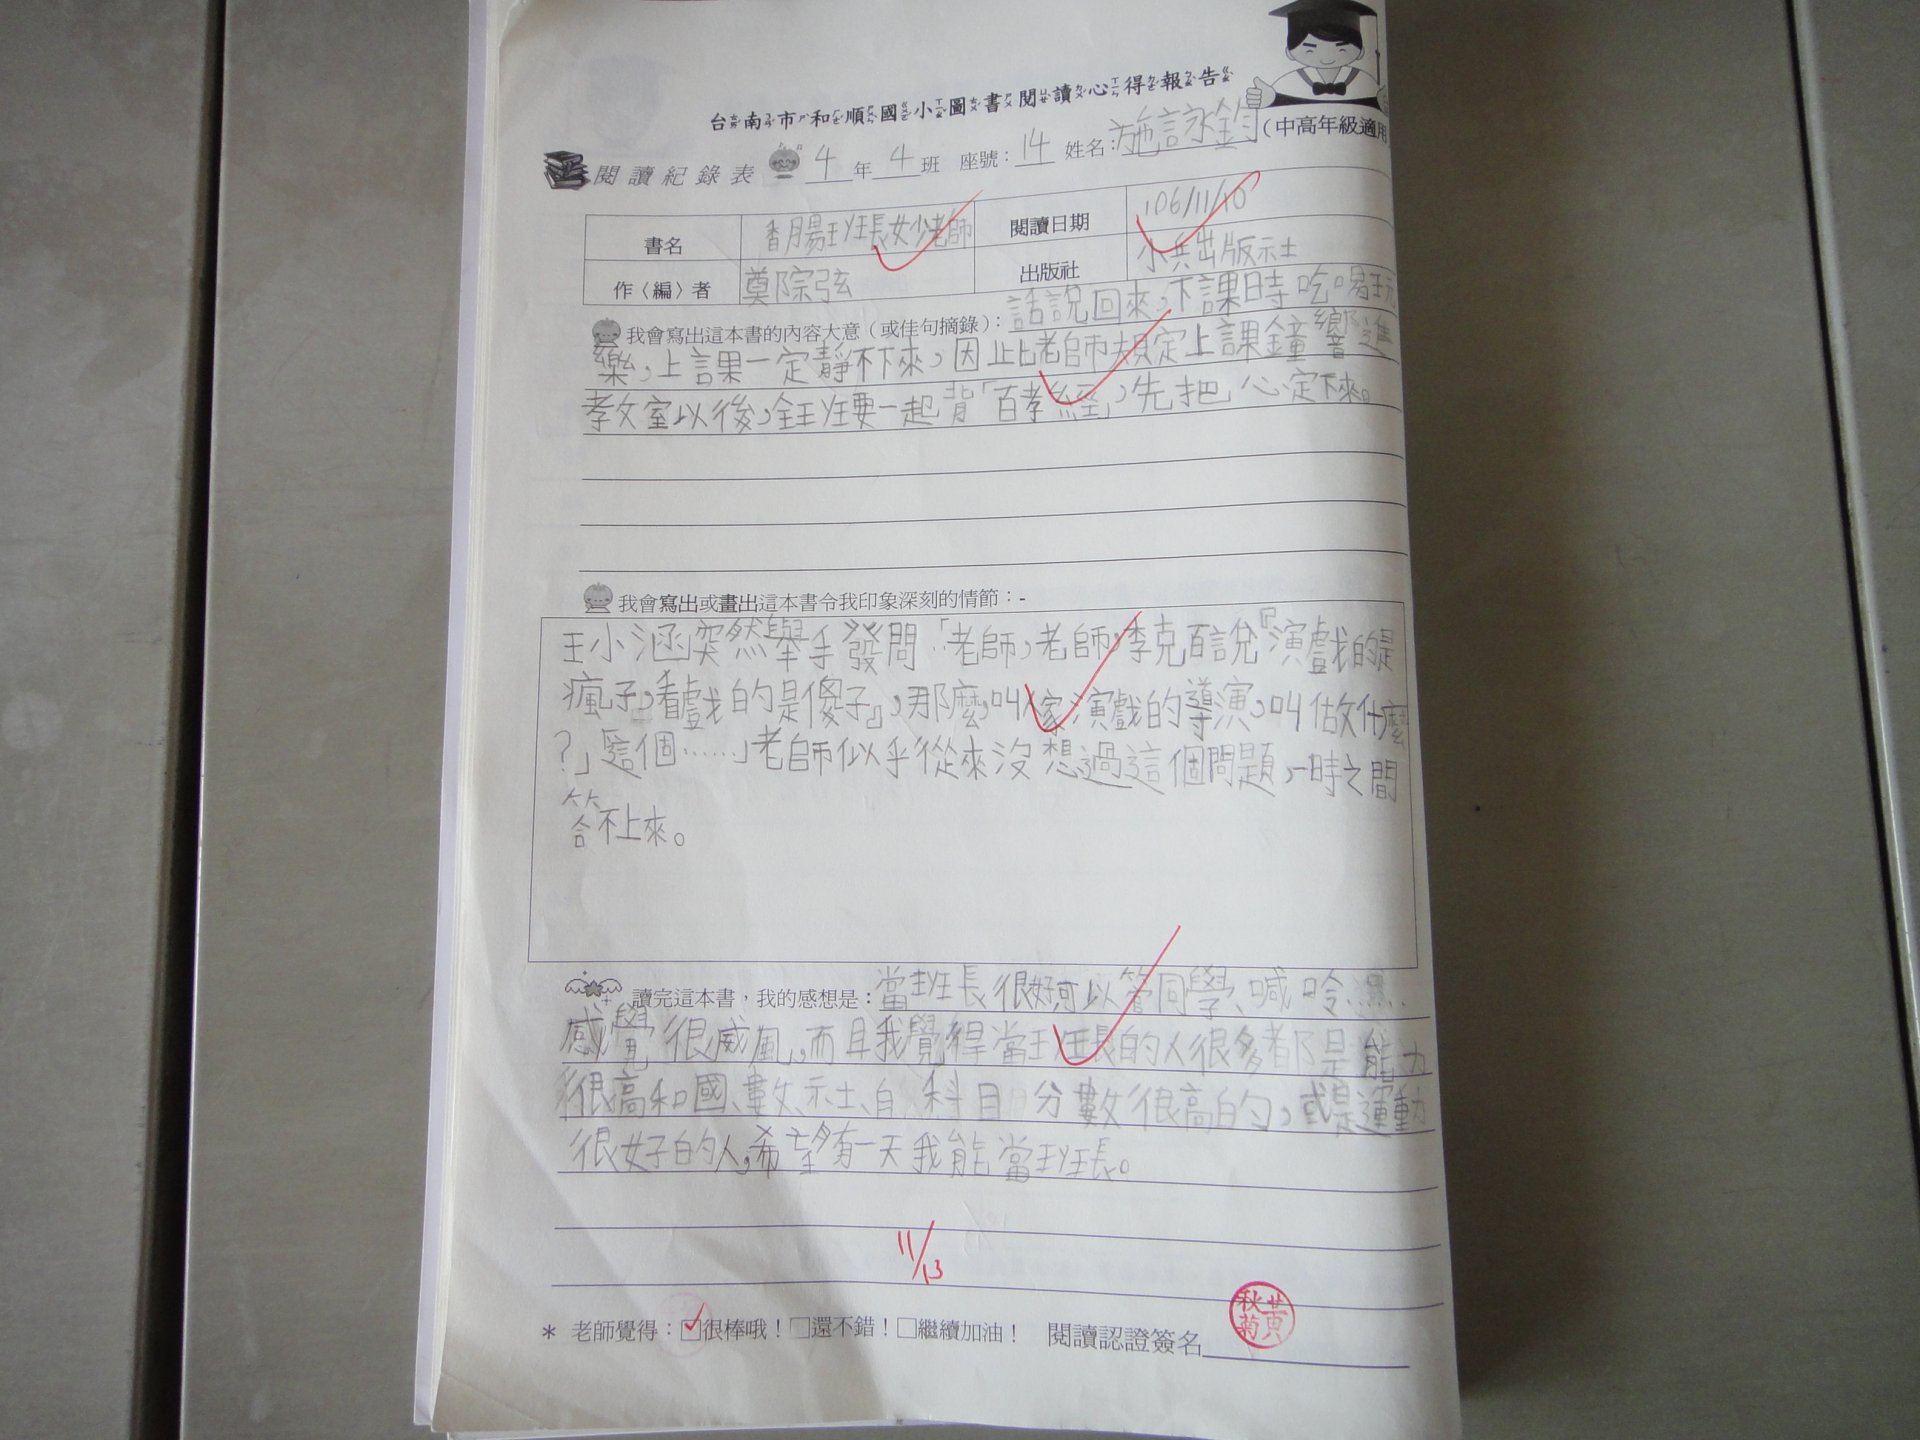 台南市和順國小圖書閱讀心得報告
閱讀紀錄表 4年4班 座號：14 姓名：施詠鈞(中高年級適用
書名 香腸班長妙老師 閱讀日期 106/11/10
作〈編〉者 鄭宗弦 出版社 小兵出版社
我會寫出這本書的內容大意（或佳句摘錄）：話說回來，下課時吃喝玩
樂，上課一定靜不下來，因此老師規定上課鐘響進
教室以後，全班要一起背「百孝經」，先把心定下來。
我會寫出或畫出這本書令我印象深刻的情節：-
王小涵突然舉手發問：「老師，老師，李克百說『演戲的是
瘋子，看戲的是傻子』，那麼，叫人家演戲的導演，叫做什麼
？」「這個……」老師似乎從來沒想過這個問題，一時之間
答不上來。
讀完這本書，我的感想是：當班長很好可以管同學、喊口令
感覺很威風，而且我覺得當班長的人很多都是能力
很高和國、數、社、自 科目分數很高的，或是運動
很好的人，希望有一天我能當班長。
11/13
＊ 老師覺得：☑很棒哦！□還不錯！□繼續加油！ 閱讀認證簽名 黃秋菊